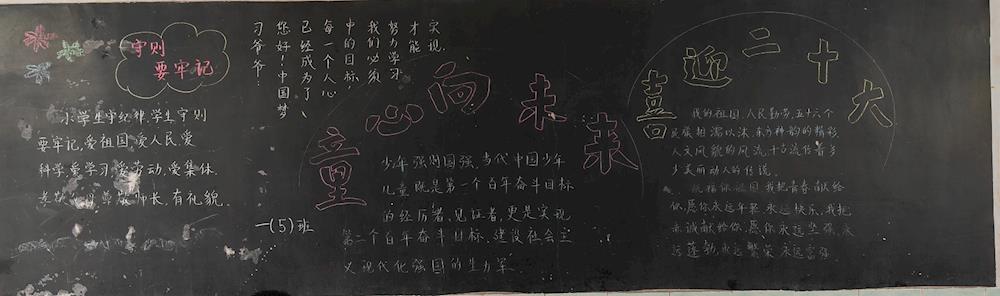 守则
要牢记
小学生守纪律,学生守则
要牢记,爱祖国,爱人民,爱
科学,爱学习,爱劳动,爱集体.
师长,有礼貌.
习爷爷:
您好!中国梦
已经成为了
每一个人心
中的目标,
我们必须
努力学习
才能
实现.
一(5)班
童心向未来
少年强则国强,当代中国少年
儿童既是第一个百年奋斗目标
的经历者、见证者,更是实现
第二个百年奋斗目标、建设社会主
义现代化强国的生力军
喜迎二十大
我的祖国,人民勤劳,五十六个
民族相濡以沫,东方神韵的精彩,
人文风貌的风流,千古流传着多
少美丽动人的传说.
祝福你祖国我把青春献给
你,愿你永远年轻永远快乐,我把
赤诚献给你,愿你永远坚强,永
远蓬勃,永远繁荣永远富强